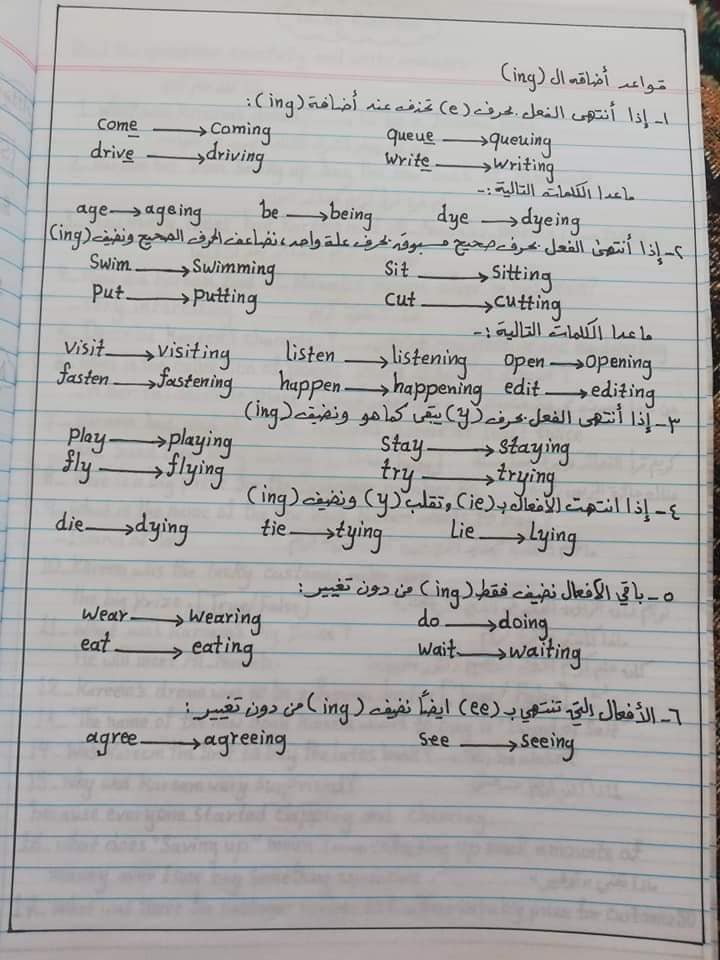 قواعد أضافه ال (ing)
١- إذا أنتهى الفعل بحرف (e) تحذف عند أضافة (ing):
come → coming queue → queuing
drive → driving write → writing
ماعدا الكلمات التالية :-
age → ageing be → being dye → dyeing
٢- إذا أنتهى الفعل بحرف صحيح مسبوقه بحرف علة واحد، نضاعف الحرف الصحيح ونضيف (ing)
Swim → Swimming Sit → Sitting
Put → Putting cut → cutting
ماعدا الكلمات التالية :-
visit → visiting listen → listening open → opening
fasten → fastening happen → happening edit → editing
٣- إذا أنتهى الفعل بحرف (y) يبقى كما هو ونضيف (ing)
Play → playing Stay → staying
fly → flying try → trying
٤- إذا انتهت الأفعال بـ (ie) وتقلب (y) ونضيف (ing)
die → dying tie → tying Lie → Lying
٥- باقي الأفعال نضيف فقط (ing) من دون تغيير :
wear → wearing do → doing
eat → eating wait → waiting
٦- الأفعال التي تنتهي بـ (ee) ايضاً نضيف (ing) من دون تغيير :
agree → agreeing see → seeing